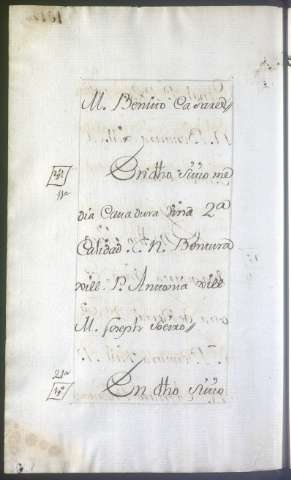 M. Benito Casares
En dho sitio me
dia Cavadura viña 2ª
Calidad. C. N. Bentura
vill. P. Antonia vill
M. Joseph
En dho sitio